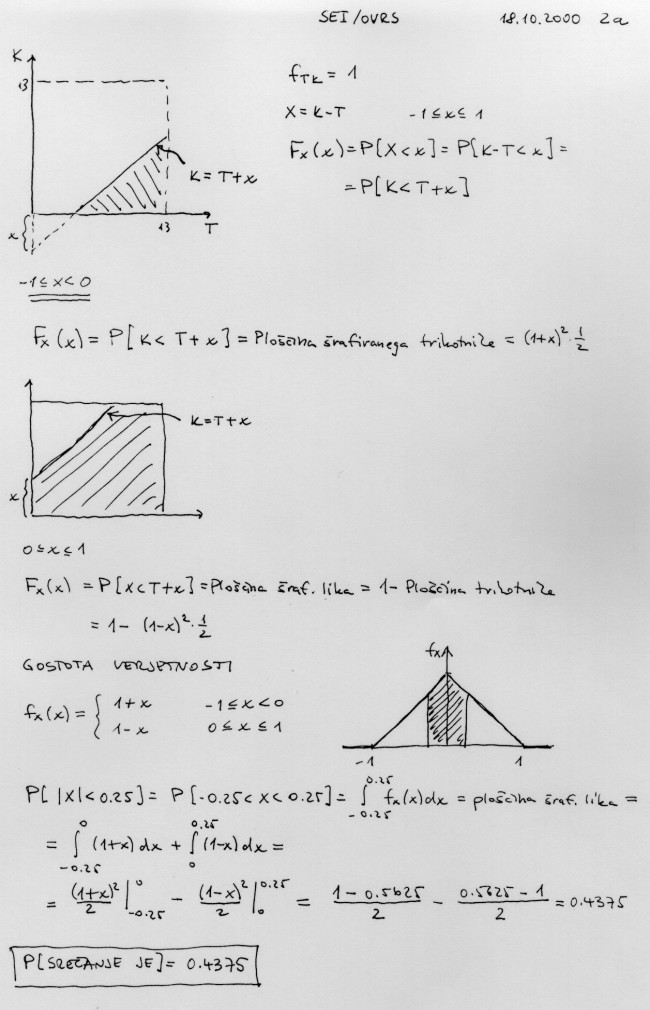 SEI/OVRS 18.10.2000 2a
K
13
f_TK = 1
X = K-T -1 ≤ x ≤ 1
F_x(x) = P[X < x] = P[K-T < x] =
= P[K < T+x]
K = T+x
x
13 T
-1 ≤ x < 0
F_x(x) = P[K < T+x] = Ploščina šrafiranega trikotnika = (1+x)² · 1/2
K = T+x
x
0 ≤ x ≤ 1
F_x(x) = P[X < T+x] = Ploščina šraf. lika = 1 - Ploščina trikotnika
= 1 - (1-x)² · 1/2
GOSTOTA VERJETNOSTI
f_x
f_x(x) = { 1+x -1 ≤ x < 0
1-x 0 ≤ x ≤ 1
-1 1
P[|X| < 0.25] = P[-0.25 < X < 0.25] = ∫_{-0.25}^{0.25} f_x(x) dx = ploščina šraf. lika =
= ∫_{-0.25}^{0} (1+x) dx + ∫_{0}^{0.25} (1-x) dx =
= (1+x)²/2 |_{-0.25}^{0} - (1-x)²/2 |_{0}^{0.25} = (1-0.5625)/2 - (0.5625-1)/2 = 0.4375
P[SREČANJE JE] = 0.4375